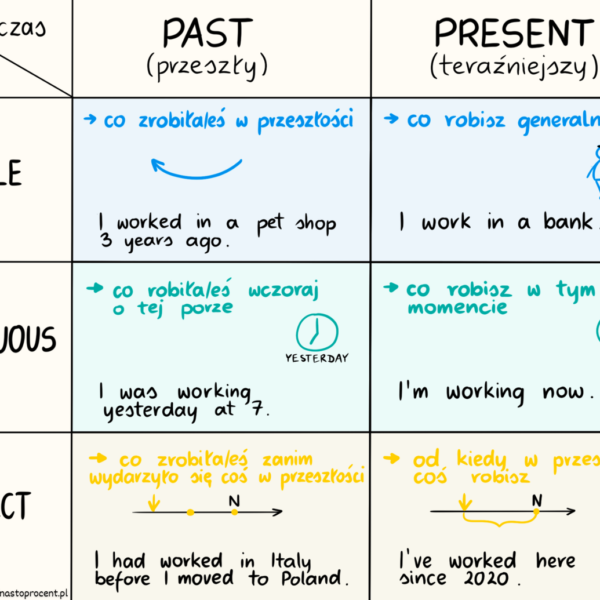 czas
PAST
(przeszły)
PRESENT
(teraźniejszy)
LE
→ co zrobiłaś/eś w przeszłości
I worked in a pet shop
3 years ago.
→ co robisz generaln
I work in a bank.
UOUS
→ co robiłaś/eś wczoraj
o tej porze
YESTERDAY
I was working
yesterday at 7.
→ co robisz w tym
momencie
I'm working now.
CT
→ co zrobiłaś/eś zanim
wydarzyło się coś w przeszłości
N
I had worked in Italy
before I moved to Poland.
→ od kiedy w przes
coś robisz
N
I've worked here
since 2020.
nastoprocent.pl